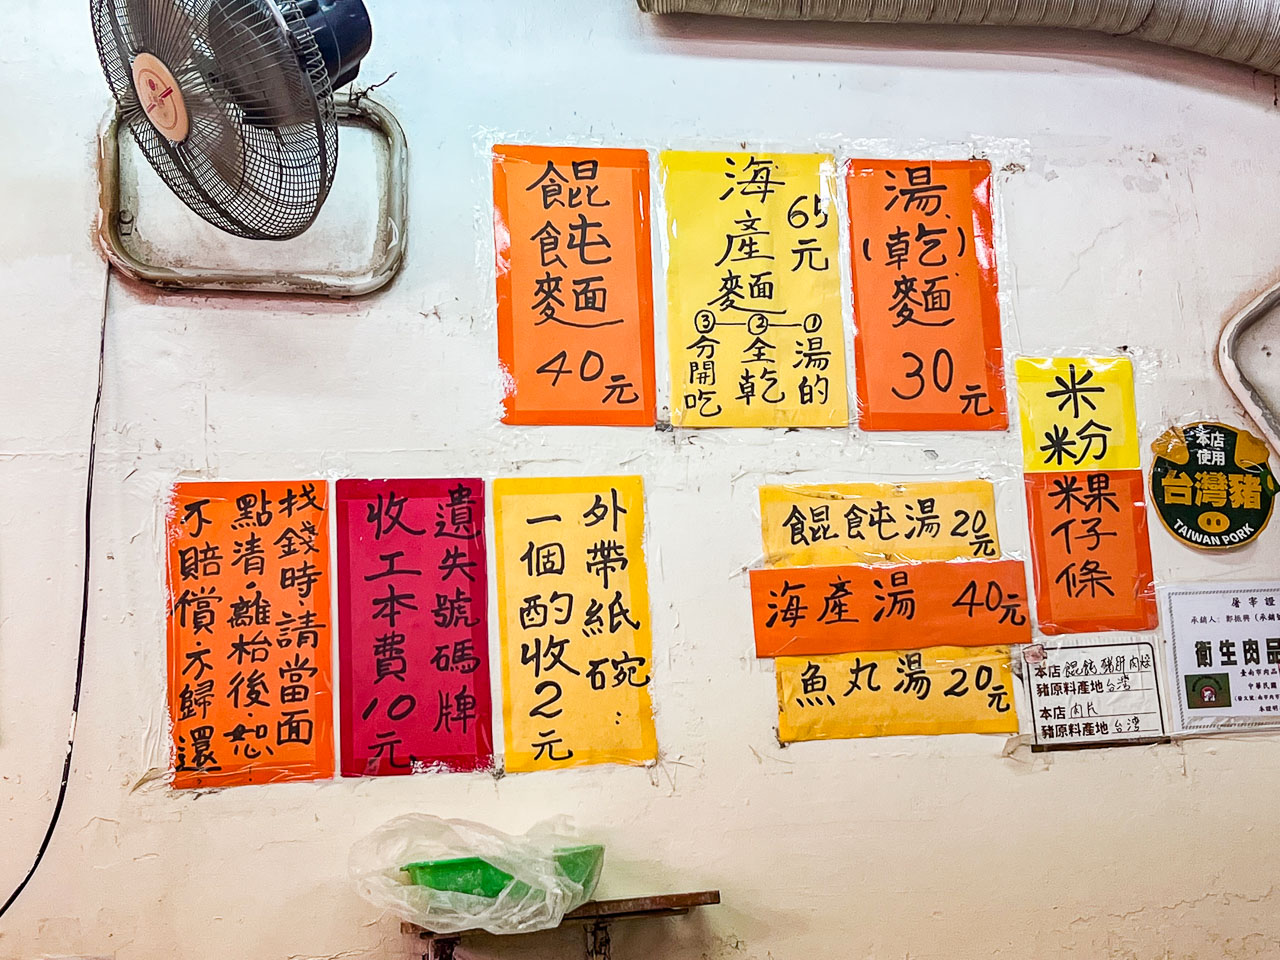 餛飩麵
40元
海產麵
65元
①湯的
②全乾
③分開吃
湯(乾)麵
30元
米粉
粿仔條
本店使用
台灣豬
TAIWAN PORK
找錢時·請當面
點清·離枱後·恕
不賠償不歸還
遺失號碼牌
收工本費10元
外帶紙碗:
一個酌收2元
餛飩湯20元
海產湯 40元
魚丸湯20元
本店
豬原料產地台灣
本店肉片
豬原料產地台灣
屠宰證
衛生肉品